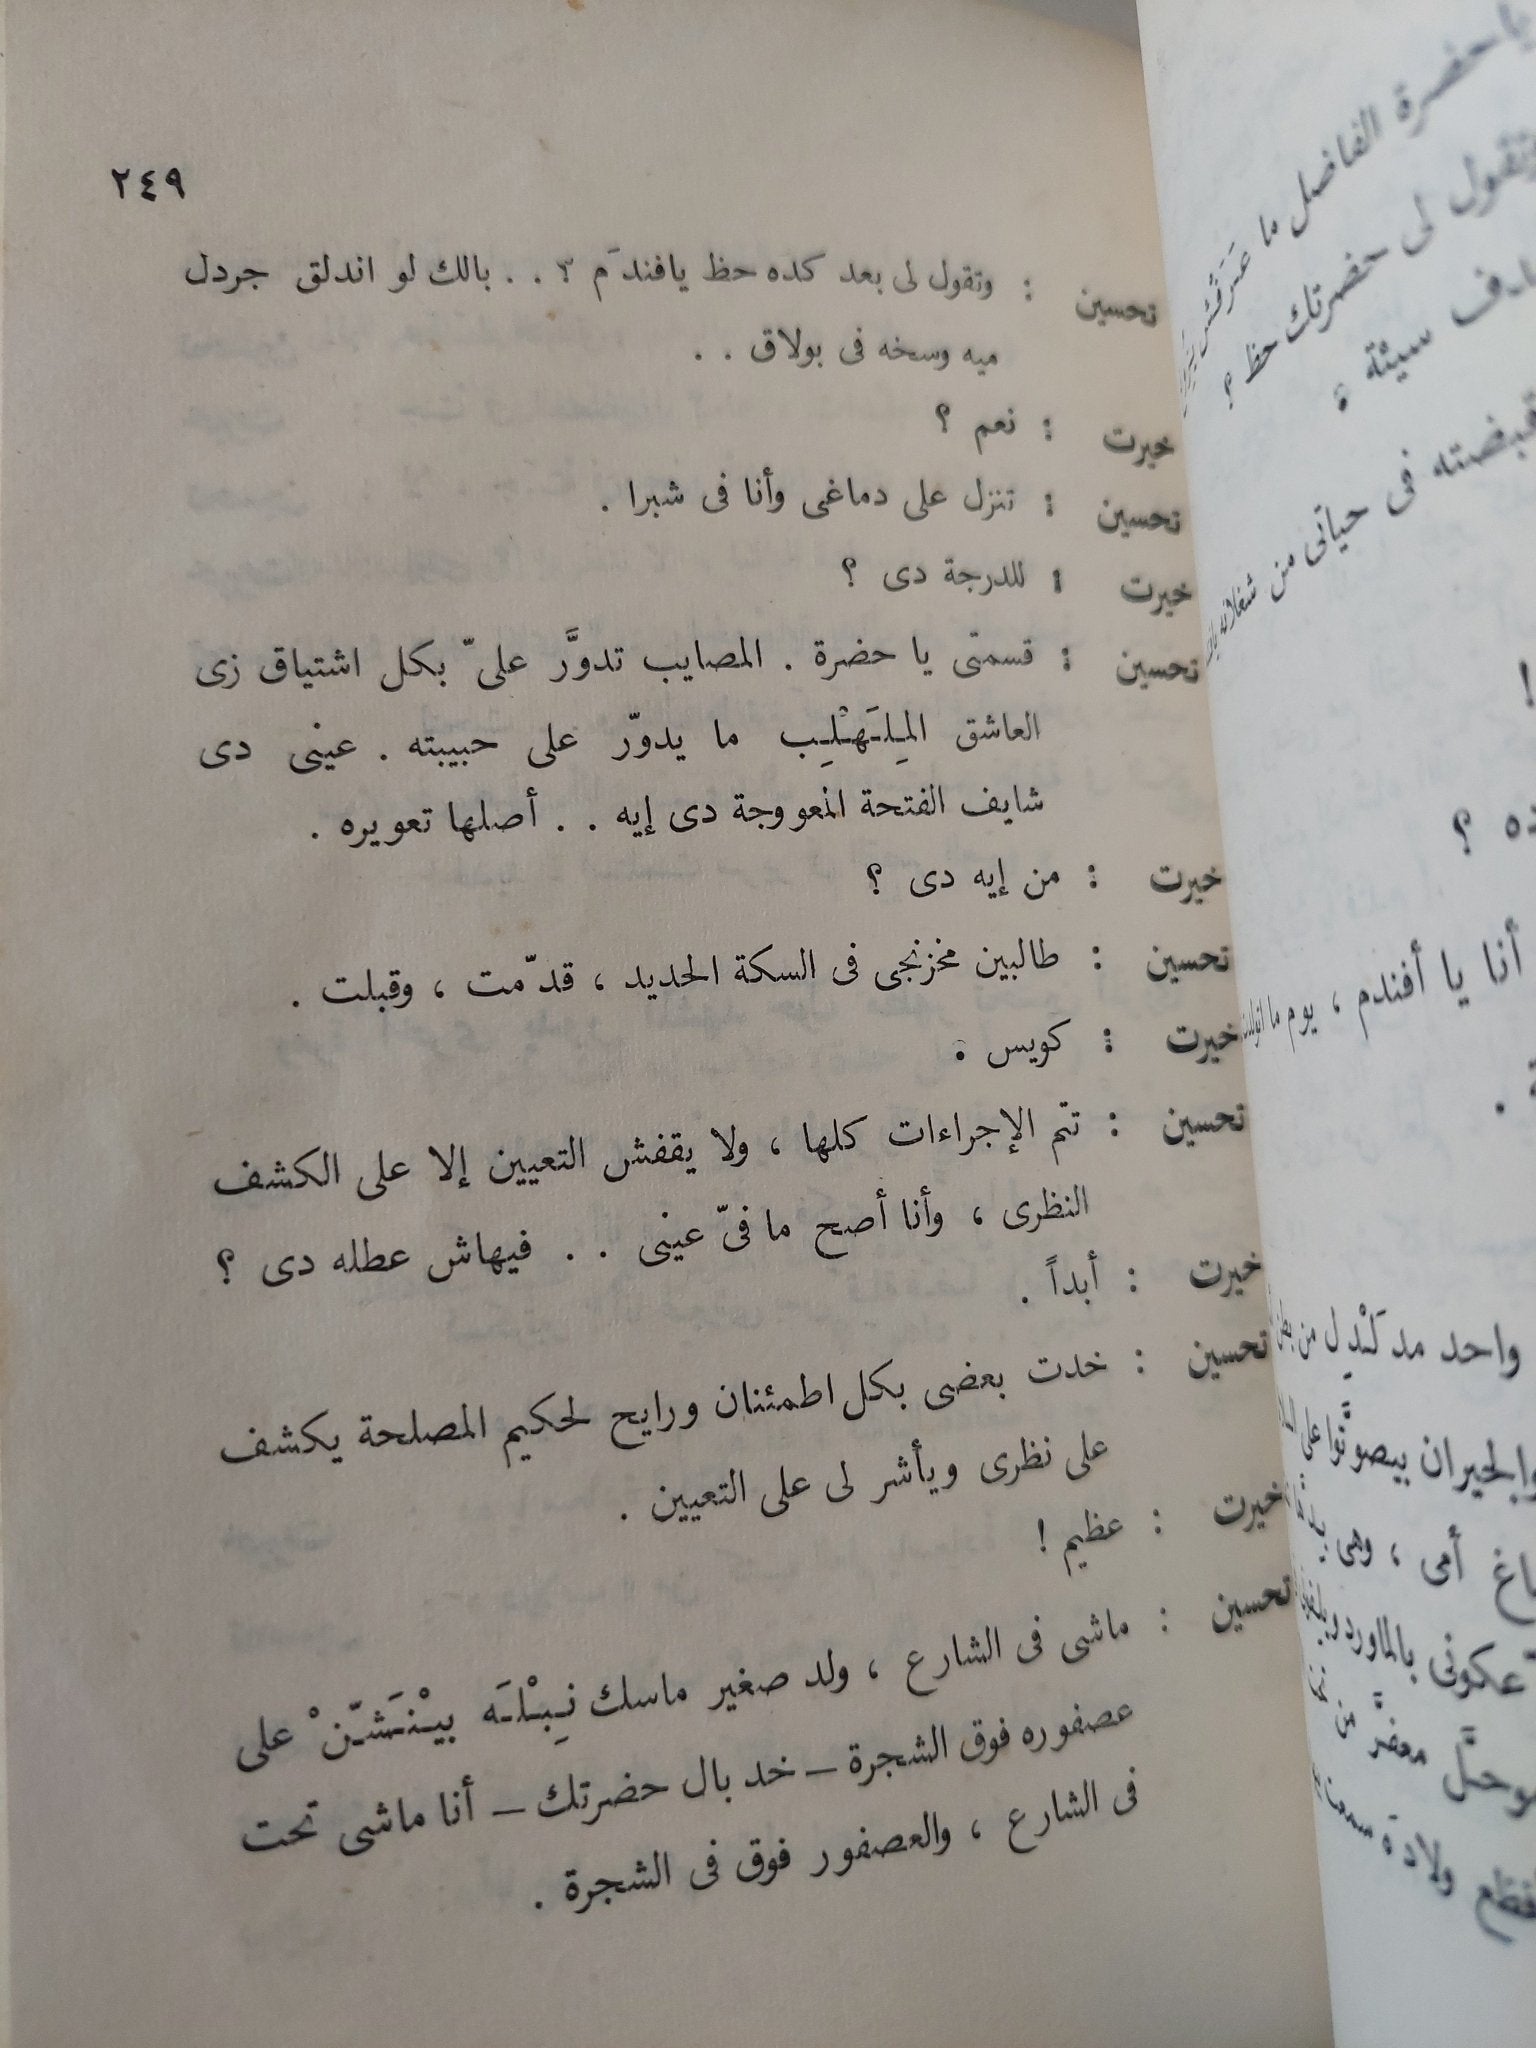 ٢٤٩
تحسين : وتقول لى بعد كده حظ يافندَم ؟ . . بالك لو اندلق جردل
ميه وسخه فى بولاق . .
خيرت : نعم ؟
تحسين : تنزل على دماغى وأنا فى شبرا .
خيرت : للدرجة دى ؟
تحسين : قسمتى يا حضرة . المصايب تدوَّر علىّ بكل اشتياق زى
العاشق المِلَهْلِب ما يدوّر على حبيبته . عينى دى
شايف الفتحة المعووجة دى إيه . . أصلها تعويره .
خيرت : من إيه دى ؟
تحسين : طالبين مخزنجى فى السكة الحديد ، قدّمت ، وقبلت .
خيرت : كويس .
تحسين : تتم الإجراءات كلها ، ولا يقفش التعيين إلا على الكشف
النظرى ، وأنا أصح ما فىّ عينى . . فيهاش عطله دى ؟
خيرت : أبداً .
تحسين : خدت بعضى بكل اطمئنان ورايح لحكيم المصلحة يكشف
على نظرى ويأشر لى على التعيين .
خيرت : عظيم !
تحسين : ماشى فى الشارع ، ولد صغير ماسك نِبْلَه بيْنَشّنْ على
عصفوره فوق الشجرة – خد بال حضرتك – أنا ماشى تحت
فى الشارع ، والعصفور فوق فى الشجرة .
يا حضرة الفاضل ما
وتقول لى حضرتك حظ ؟
سيئة .
قبضته فى حياتى من
!
ده ؟
أنا يا أفندم ، يوم ما
واحد مدَلْدِل من بطن
والجيران بيصوتوا على
أمى ، وهى
بالماورد
معفر من
ولادة سمعت